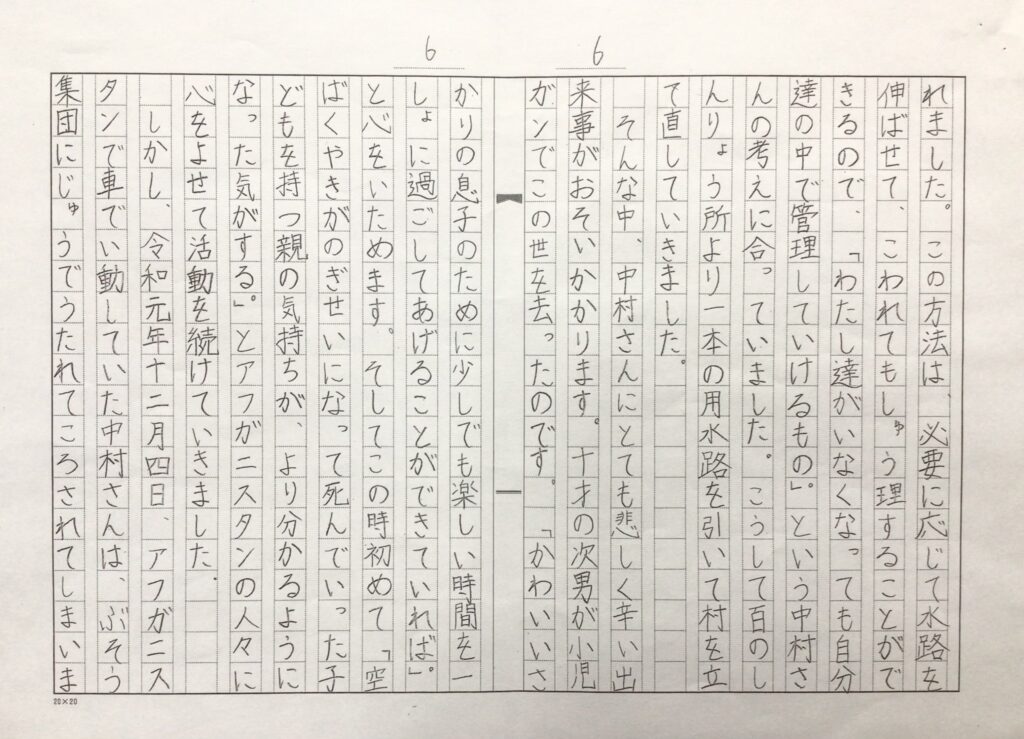 6
れました。この方法は、必要に応じて水路を
伸ばせて、こわれてもしゅう理することがで
きるので、「わたし達がいなくなっても自分
達の中で管理していけるもの」。という中村さ
んの考えに合っていました。こうして百のし
んりょう所より一本の用水路を引いて村を立
て直していきました。
　そんな中、中村さんにとても悲しく辛い出
来事がおそいかかります。十才の次男が小児
ガンでこの世を去ったのです。「かわいいさ
6
かりの息子のために少しでも楽しい時間を一
しょに過ごしてあげることができていれば」。
と心をいためます。そしてこの時初めて「空
ばくやきがのぎせいになって死んでいった子
どもを持つ親の気持ちが、より分かるように
なった気がする」。とアフガニスタンの人々に
心をよせて活動を続けていきました。
　しかし、令和元年十二月四日、アフガニス
タンで車でい動していた中村さんは、ぶそう
集団にじゅうでうたれてころされてしまいま
20×20